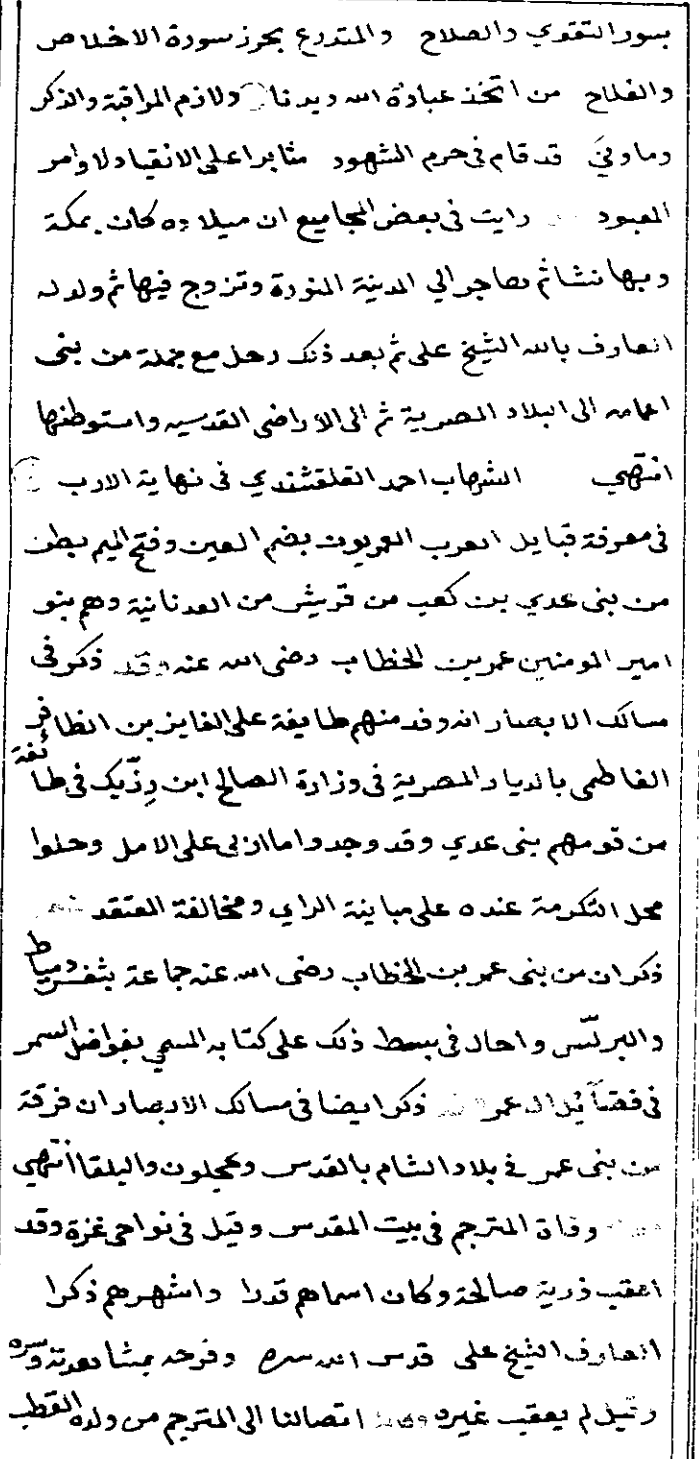 بسور التقوي والصلاح والمتدرع بحرز سورة الاخلاص
والفلاح من اتخذ عبادة الله ديدنا ولازم المراقبة والذكر
وما وني قد قام في حرم الشهود مثابرا على الانقياد لاوامر
المعبود رايت في بعض المجاميع ان ميلاده كان بمكة
وبها نشا ثم هاجر الي المدينة المنورة وتزوج فيها ثم ولد له
العارف بالله الشيخ على ثم بعد ذلك رحل مع جملة من بنى
اعمامه الى البلاد المصرية ثم الى الاراضى القدسيه واستوطنها
انتهي الشهاب احمد القلقشندي في نهاية الارب
في معرفة قبايل العرب العمريون بضم العين وفتح الميم بطن
من بنى عدي بن كعب من قريش من العدنانية وهم بنو
امير المومنين عمر بن الخطاب رضى الله عنه وقد ذكر فى
مسالك الابصار انه وفد منهم طايفة على الفايز بن الظافر
الفاطمى بالديار المصرية فى وزارة الصالح ابن رزّيك فى طائفة
من قومهم بنى عدي وقد وجدوا ما اربى على الامل وحلوا
محل التكرمة عنده على مباينة الراي ومخالفة المعتقد
ذكر ان من بنى عمر بن الخطاب رضى الله عنه جماعة بثغر دمياط
والبرلّس واحال فى بسط ذلك على كتابه المسمي بفواضل السمر
فى فضآئل ال عمر ذكر ايضا فى مسالك الابصار ان فرقة
من بنى عمر فى بلاد الشام بالقدس وعجلون والبلقا انتهي
وفاة المترجم فى بيت المقدس وقيل فى نواحى غزة وقد
اعقب ذرية صالحة وكان اسماهم قدرا واشهرهم ذكرا
العارف الشيخ على قدس الله سره وفرحه بمشاهدته وسره
وقيل لم يعقب غيره اتصالنا الى المترجم من ولده القطب